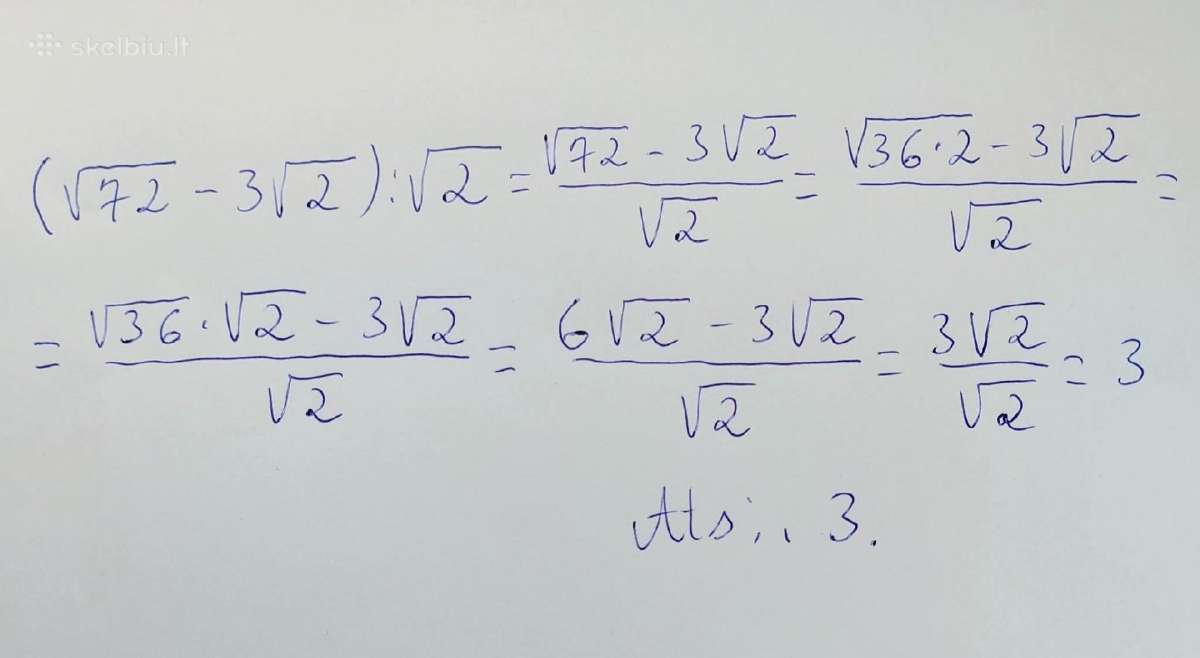 skelbiu.lt
(√72 - 3√2) : √2 = (√72 - 3√2)/√2 = (√36·2 - 3√2)/√2 =
= (√36 · √2 - 3√2)/√2 = (6√2 - 3√2)/√2 = 3√2/√2 = 3
Ats.: 3.